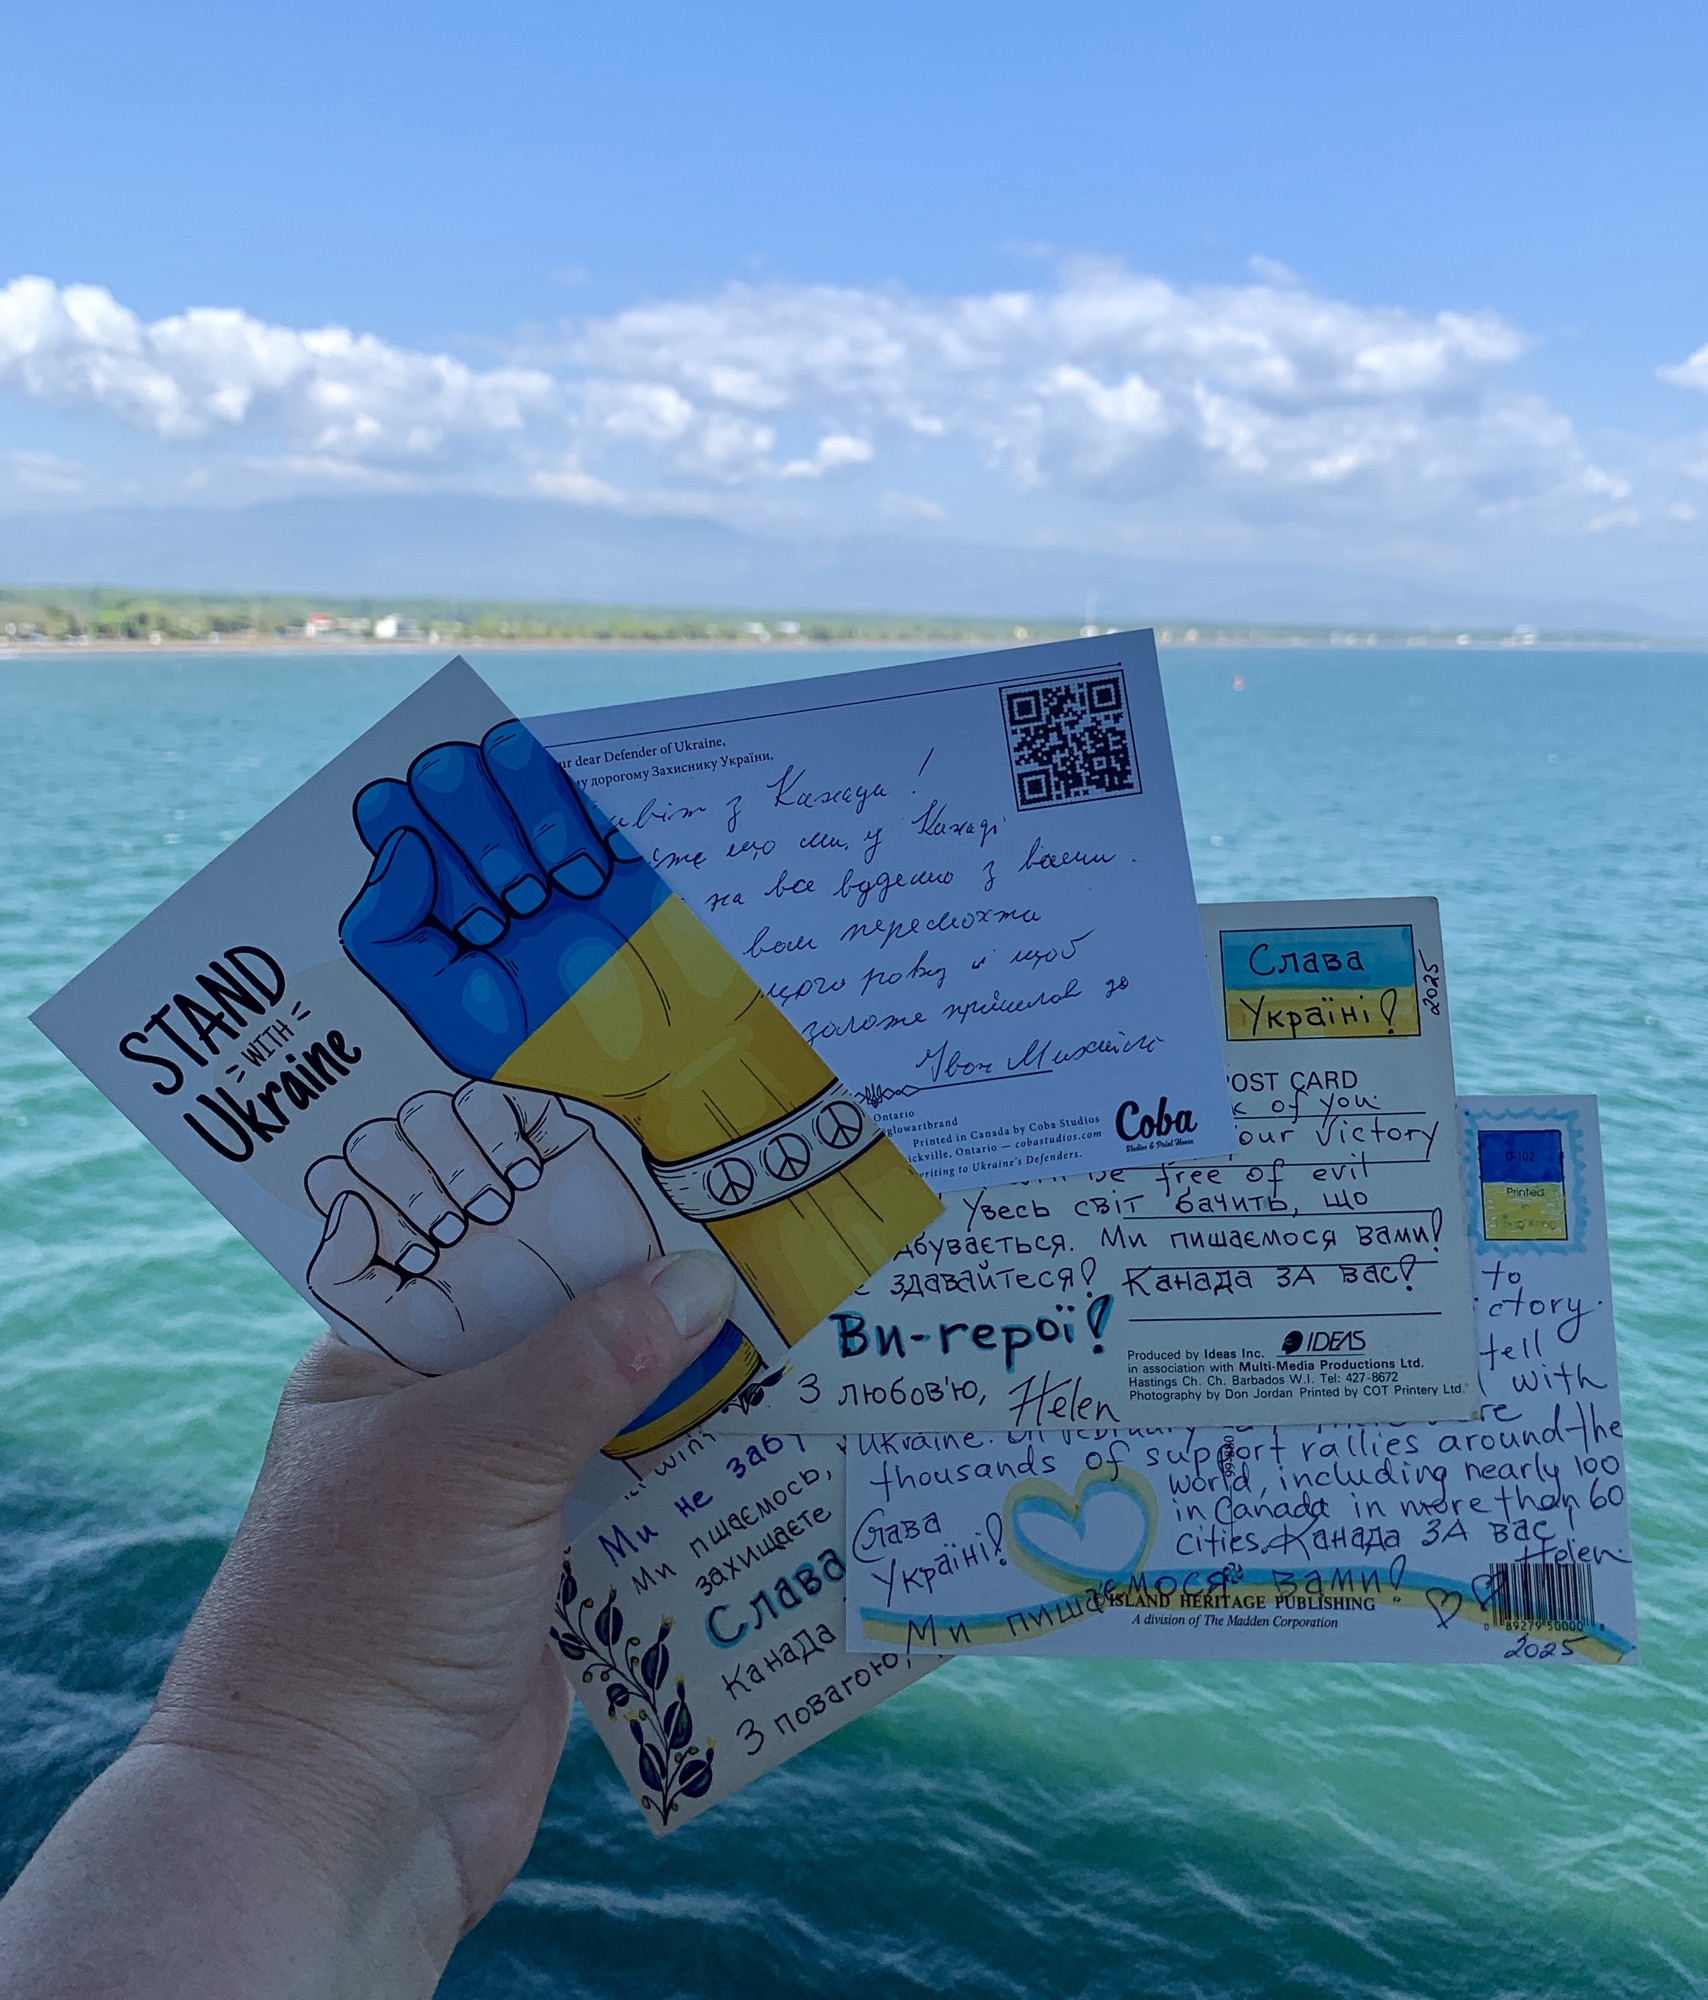 STAND
WITH
Ukraine
ur dear Defender of Ukraine,
му дорогому Захиснику України,
з Канади!
що ми, у Канаді
на все будемо з вами.
вам перемохти
цього року и щоб
до
Ontario
glowartbrand
Printed in Canada by Coba Studios
ickville, Ontario — cobastudios.com
writing to Ukraine's Defenders.
Coba
Studios & Print House
Слава
Україні!
2025
OST CARD
k of you.
our Victory
be free of evil
Увесь світ бачить, що
дбувається. Ми пишаємося вами!
здавайтеся! Канада ЗА вас!
Ви-герої!
З любов'ю, Helen
IDEAS
Produced by Ideas Inc.
in association with Multi-Media Productions Ltd.
Hastings Ch. Ch. Barbados W.I. Tel: 427-8672
Photography by Don Jordan Printed by COT Printery Ltd.
D-102
Printed
in
to
ctory.
tell
with
re
Ukraine. On February
thousands of support rallies around the
world, including nearly 100
in Canada in more than 60
cities. Канада ЗА вас!
Helen
Слава
Україні!
Ми пишаємося вами!
ISLAND HERITAGE PUBLISHING
A division of The Madden Corporation
0 89279 50000 8
2025
Ми не забу
Ми пишаємось,
захищаєте
Слава
Канада
З повагою,